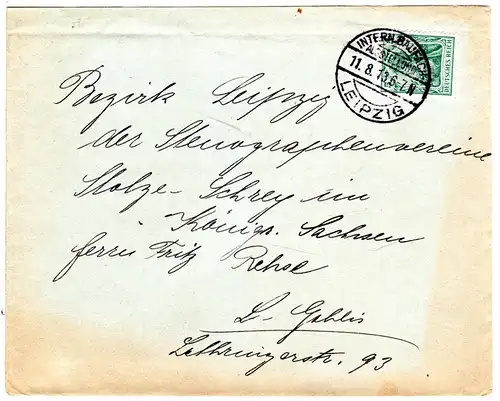 INTERN. BAUFACH
AUSSTELLUNG
11.8.13.6-7N
LEIPZIG
DEUTSCHES REICH
Bezirk Leipzig
der Stenographenvereine
Stolze-Schrey im
Königr. Sachsen
Herrn Fritz Rehse
L-Gohlis
Lothringerstr. 93